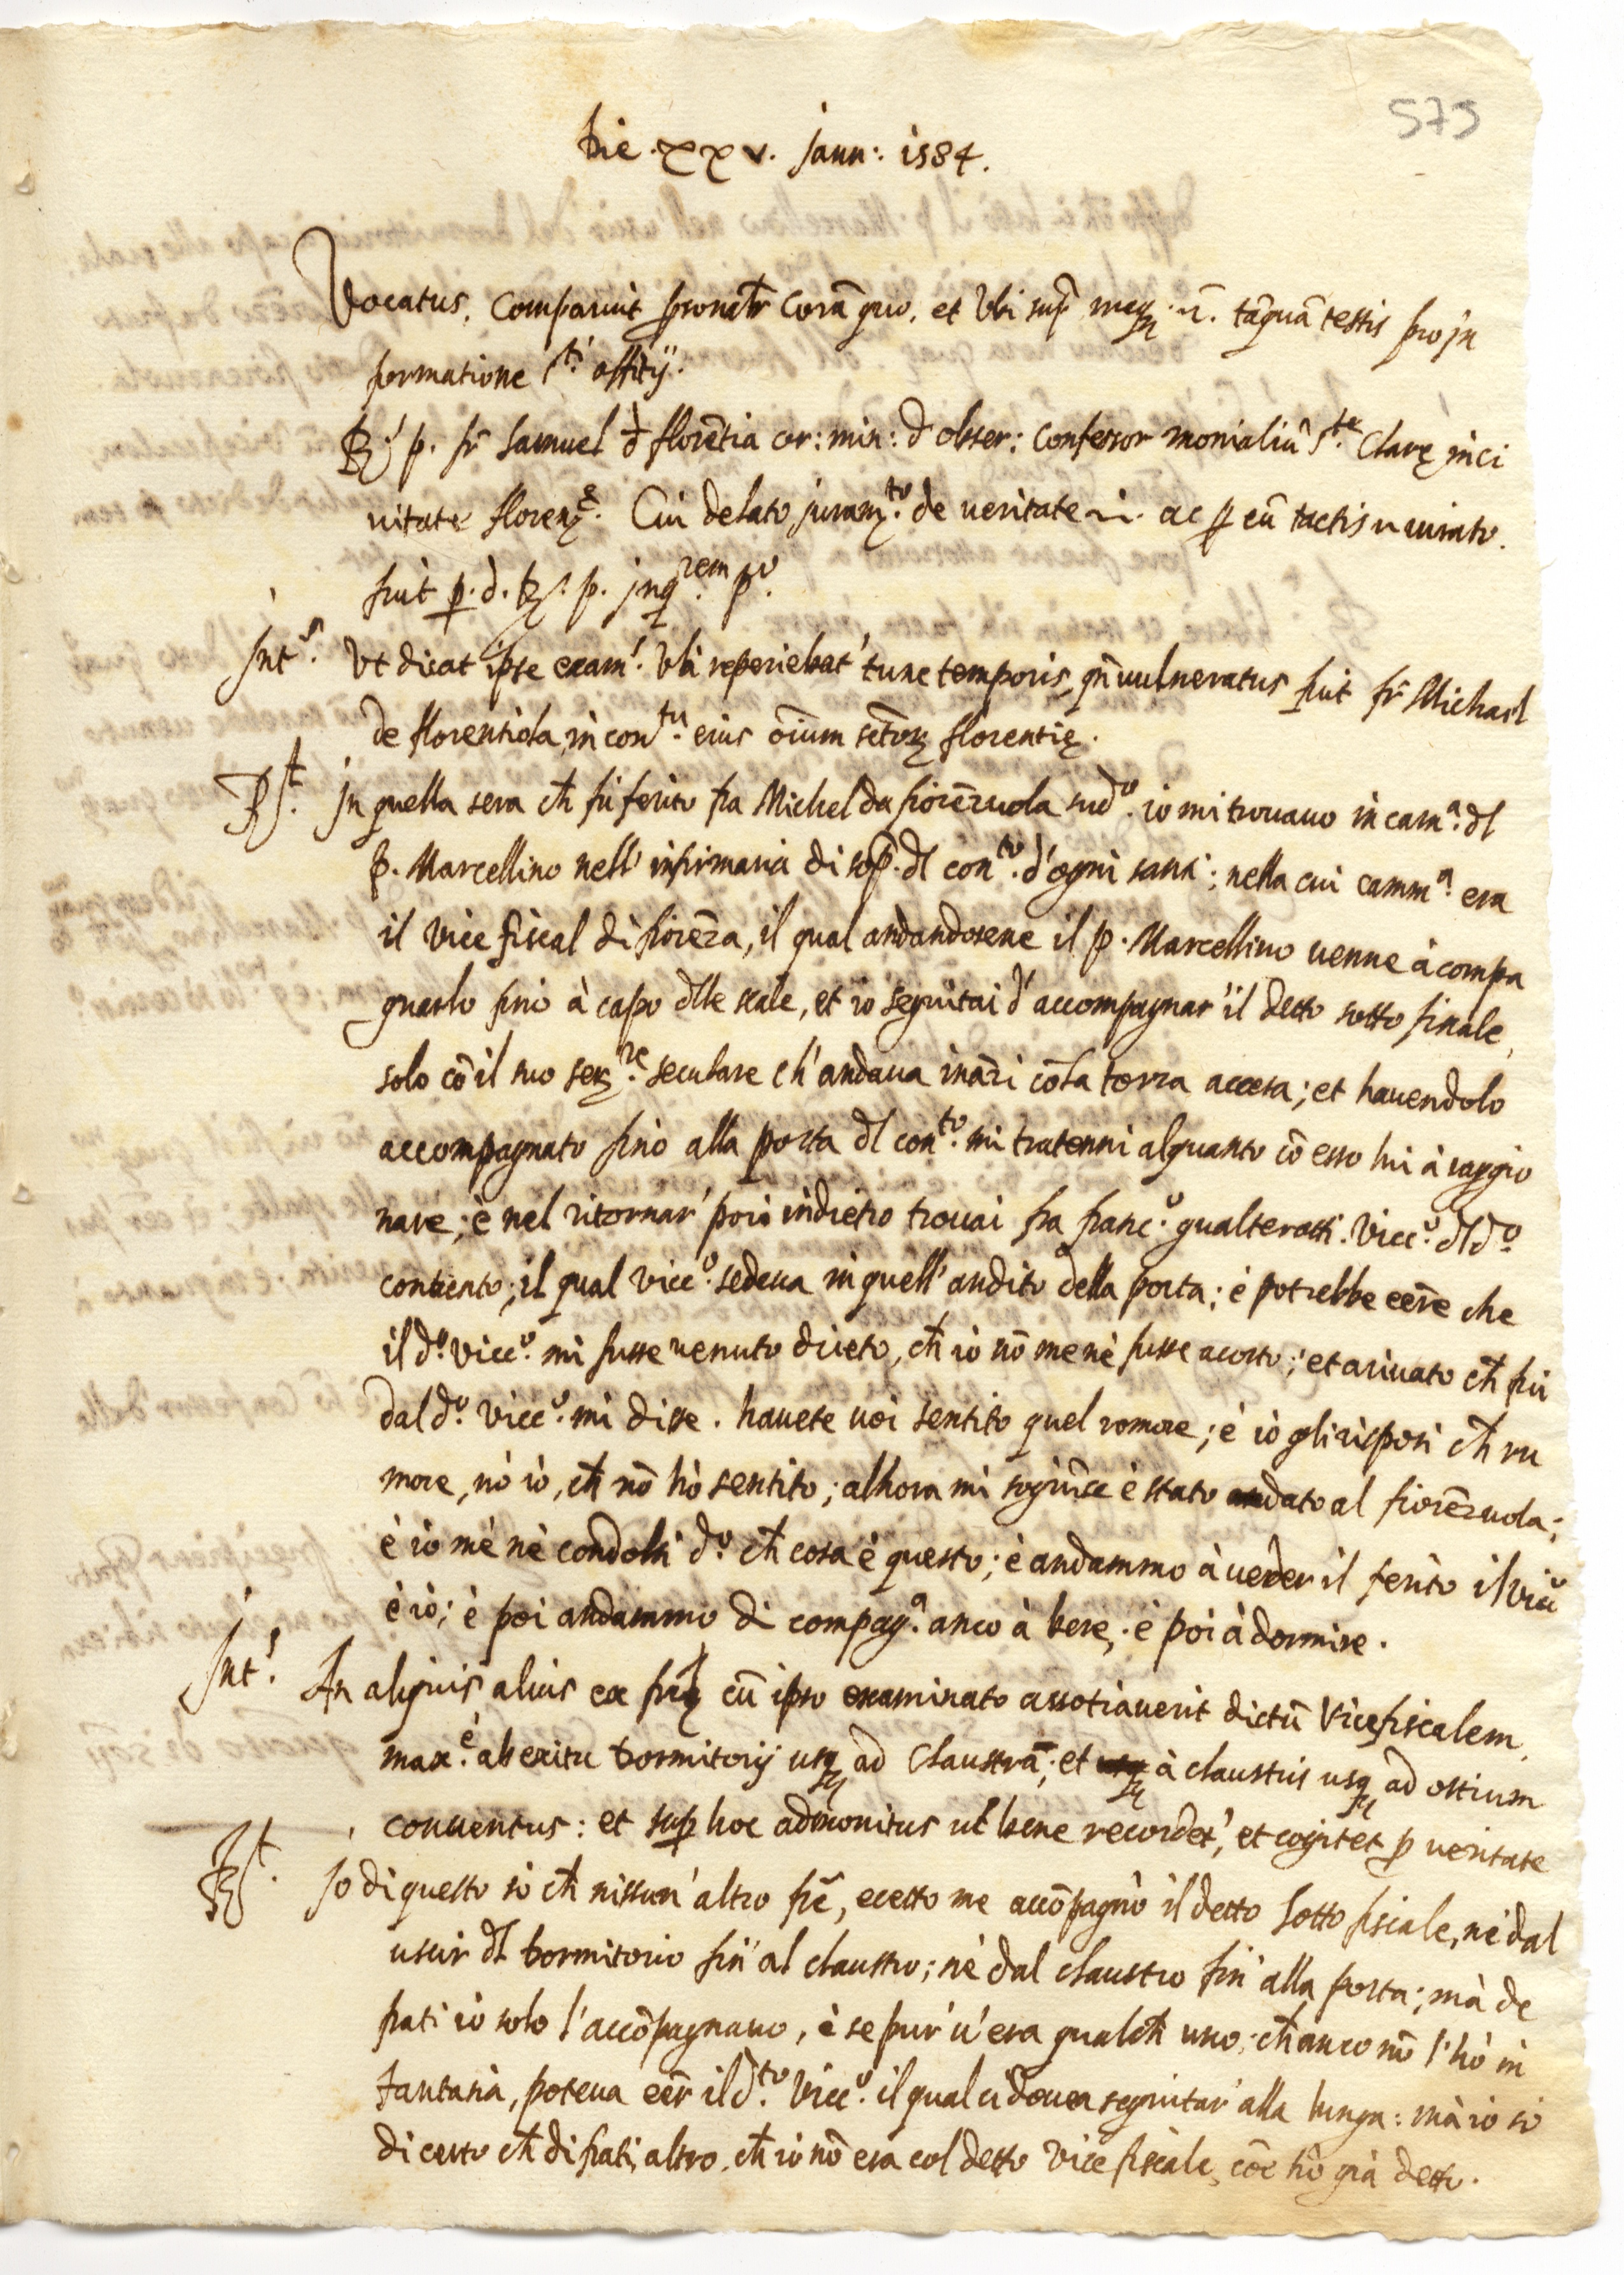 579
Die .xxv. Jann: 1584.
Vocatus, comparuit psonalr corã quo, et Vbi supᵃ tãquã testis pro jn
formatione Sᵗⁱ offitij.
R. p. fr Samuel d florẽtia or: min: d obser: Confessor monialiũ Sᵗᵉ Clarę in ci
uitate florenᵉ. Cui delato juramᵗᵒ de ueritate ac p eũ tactis
fuit p. d. R. p. jnqʳᵉᵐ pᵒ.
Intˢ. Vt dicat ipse examˢ. Vbi reperiebat' tunc temporis, qñ uulneratus fuit fr Michael
de florentiola, in conᵗᵘ eius õium sctõrꝝ florentię.
Rᵗ. Jn quella sera ch̃ fu ferito fra Michel da fiorẽzuola sudᵒ. io mi trouauo in camᵃ. dl
p. Marcellino nell' infirmaria di sopᵃ. dl conᵗᵒ. d'ogni santi; nella cui cammᵃ. era
il vice fiscal di fiorẽza, il qual andandosene il p. Marcellino uenne à compa
gnarlo fino à capo dlle scale, et io seguitai d' accompagnar' il detto sotto fiscale
solo cõ il suo serʳᵉ seculare ch' andaua inãzi cõ la torza accesa; et hauendolo
accompagnato fino alla porta dl conᵗᵒ. mi tratenni alquanto cõ esso lui à raggio
nare; è nel ritornar' poi indietro trouai fra francᵒ. gualterotti. Viccᵒ. dl dᵒ.
conuento; il qual viccᵒ. sedeua in quell' andito della porta; è potrebbe eẽre che
il dᵒ. viccᵒ. mi fusse uenuto drieto, ch̃ io nõ me nè fusse acorto; et ariuato ch̃ fui
dal dᵒ. viccᵒ. mi disse. hauete uoi sentito quel romore; è io gli risposi ch̃ ru
more, nò io, ch̃ nõ hò sentito; alhora mi sogiũse è stato dato al fiorẽzuola;
è io me nè condolsi dᵒ. ch̃ cosa è questo; è andammo à ueder il ferito il viccᵒ
è io; è poi andammo di compagᵃ. anco à bere, è poi à dormire.
Intˢ. An aliquis alius ex frĩb cũ ipso examinato assotiauerit dictũ Vicefiscalem
maxᵉ. ab exitu dormitorij usq ad claustrã; et à claustris usq ad ostium
conuentus: et sup hoc admonitus ut bene recordet', et cogitet p ueritate
Rᵗ. Jo di questo sò ch̃ nissun' altro frẽ, ecetto me accõpagnò il detto sotto fiscale, nè dal
uscir dl dormitorio fin' al claustro; nè dal claustro fin' alla porta; mà de
frati io solo l' accõpagnauo, è se pur' u' era qualch̃ uno, ch̃ anco nõ l' hò in
fantasia, poteua eẽr il dᵗᵒ. Viccᵒ. il qual ci doueua seguitar' alla lunga: mà io sò
di certo ch̃ di frati, altro, ch̃ io nõ era col detto Vice fiscale, cõe hò già detto.